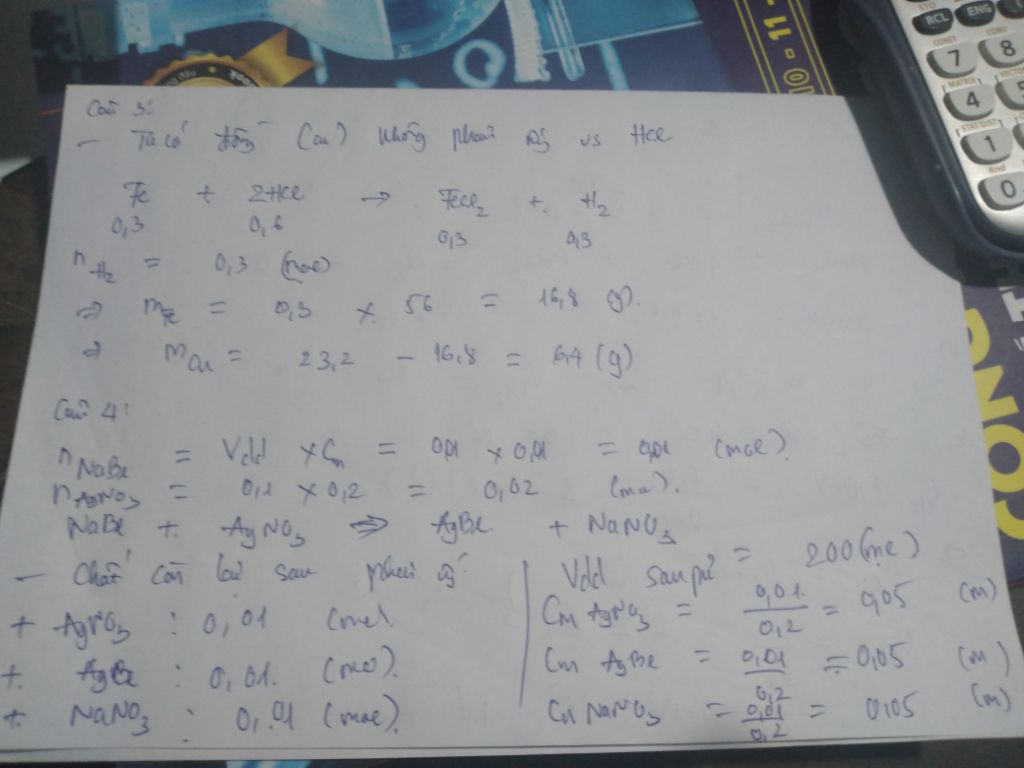 Câu 3:
- Ta có đồng (Cu) không phản ứng vs HCl
Fe + 2HCl → FeCl2 + H2
0,3 0,6 0,3 0,3
nH2 = 0,3 (mol)
⇒ mFe = 0,3 × 56 = 16,8 (g).
⇒ mCu = 23,2 - 16,8 = 6,4 (g)
Câu 4:
nNaBr = Vdd × Cm = 0,1 × 0,1 = 0,01 (mol).
nAgNO3 = 0,1 × 0,2 = 0,02 (mol).
NaBr + AgNO3 ⇒ AgBr + NaNO3
- Chất còn lại sau phản ứng:
+ AgNO3 : 0,01 (mol).
+ AgBr : 0,01. (mol).
+ NaNO3 : 0,01 (mol).
Vdd sau pứ = 200 (ml)
Cm AgNO3 = 0,01 / 0,2 = 0,05 (M)
Cm AgBr = 0,01 / 0,2 = 0,05 (M)
Cm NaNO3 = 0,01 / 0,2 = 0,05 (M)
RCL ENG
CONST
7 8
MATRIX
4
STAT/DIST
1
0